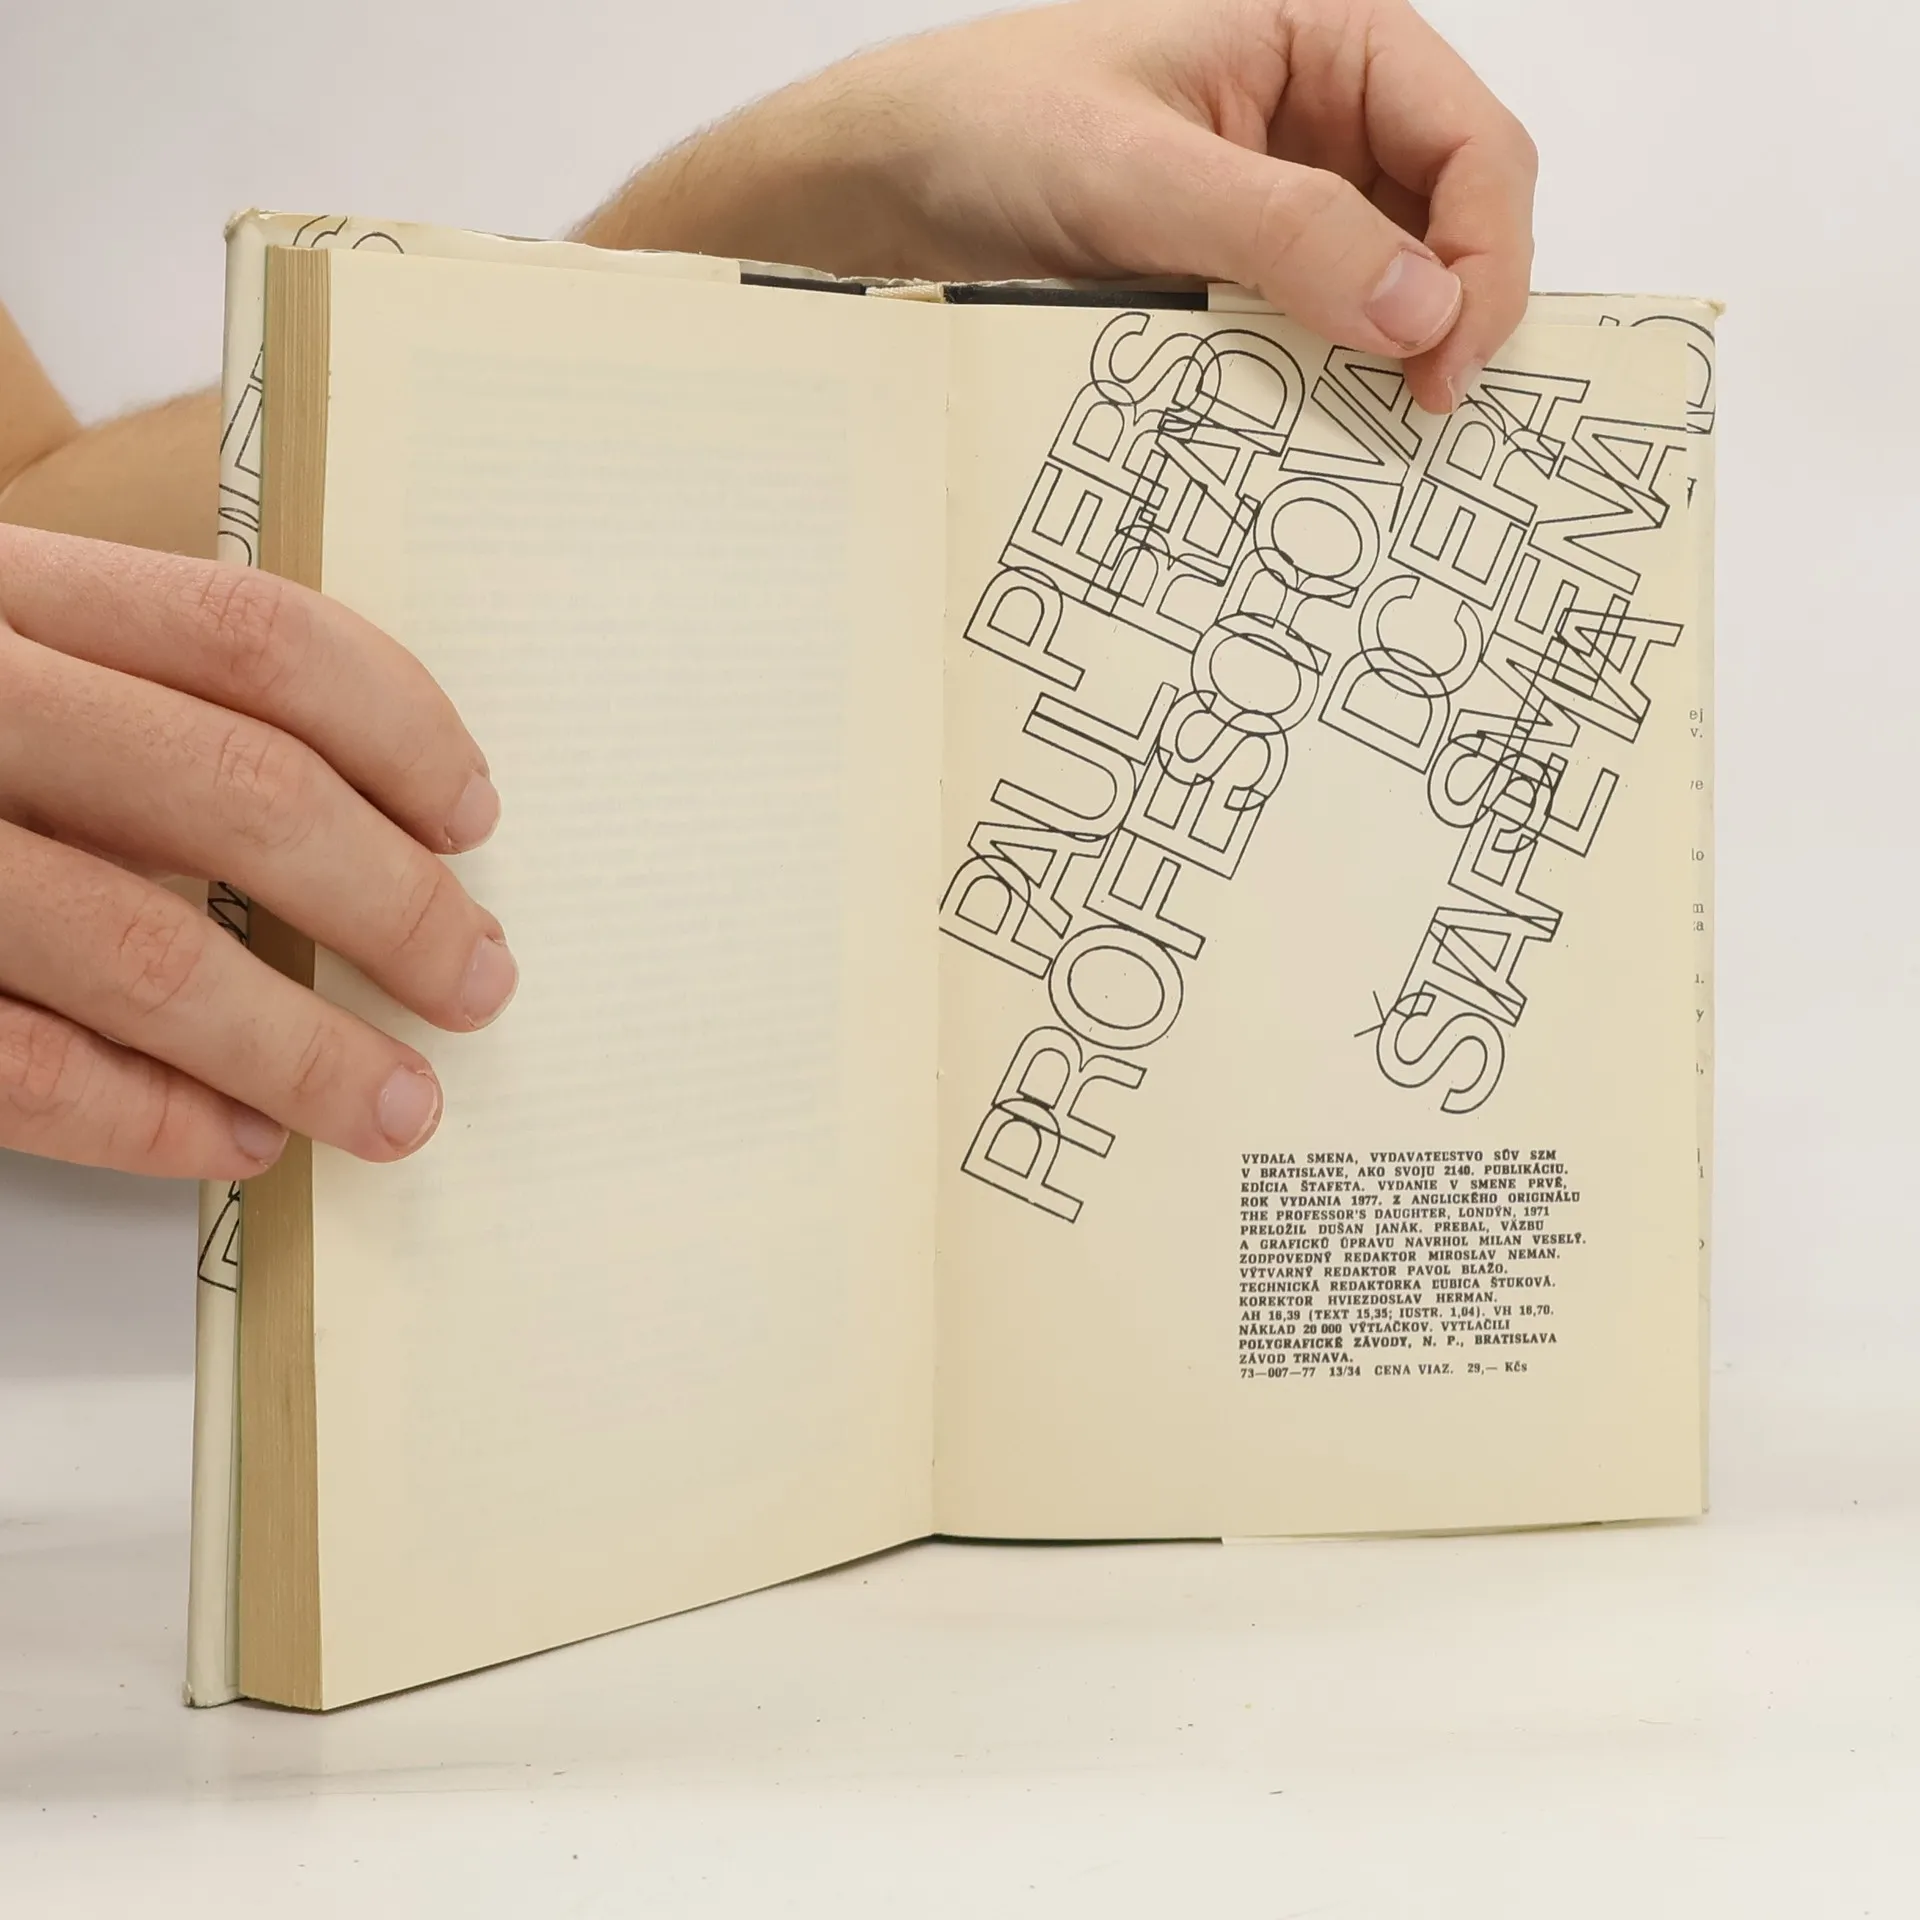 PIERS
PAUL READ
PROFESOROVA
DCÉRA
SMENA
ŠTAFETA
VYDALA SMENA, VYDAVATEĽSTVO SÚV SZM
V BRATISLAVE, AKO SVOJU 2140. PUBLIKÁCIU.
EDÍCIA ŠTAFETA. VYDANIE V SMENE PRVÉ,
ROK VYDANIA 1977. Z ANGLICKÉHO ORIGINÁLU
THE PROFESSOR'S DAUGHTER, LONDÝN, 1971
PRELOŽIL DUŠAN JANÁK. PREBAL, VÄZBU
A GRAFICKÚ ÚPRAVU NAVRHOL MILAN VESELÝ.
ZODPOVEDNÝ REDAKTOR MIROSLAV NEMAN.
VÝTVARNÝ REDAKTOR PAVOL BLAŽO.
TECHNICKÁ REDAKTORKA ĽUBICA ŠTUKOVÁ.
KOREKTOR HVIEZDOSLAV HERMAN.
AH 16,39 (TEXT 15,35; IUSTR. 1,04). VH 16,70.
NÁKLAD 20 000 VÝTLAČKOV. VYTLAČILI
POLYGRAFICKÉ ZÁVODY, N. P., BRATISLAVA
ZÁVOD TRNAVA.
73—007—77 13/34 CENA VIAZ. 29,— Kčs